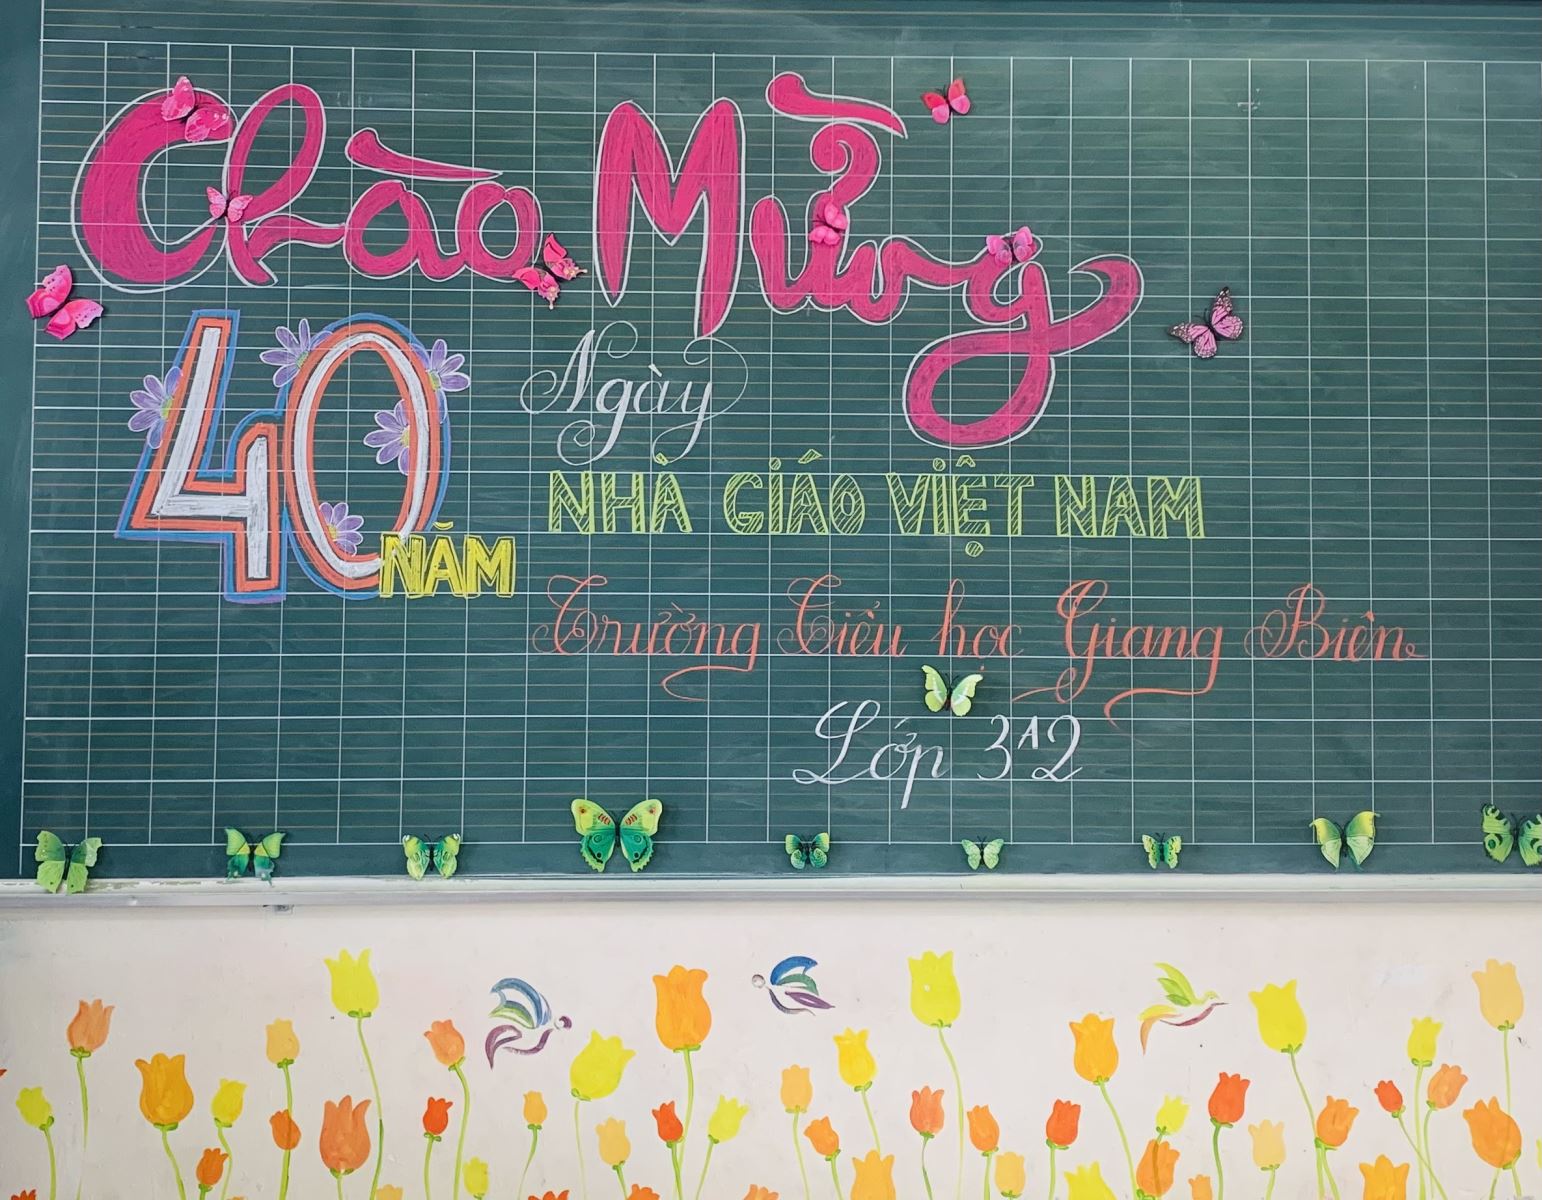 Chào Mừng
40 NĂM
Ngày
NHÀ GIÁO VIỆT NAM
Trường Tiểu học Giang Biên
Lớp 3A2